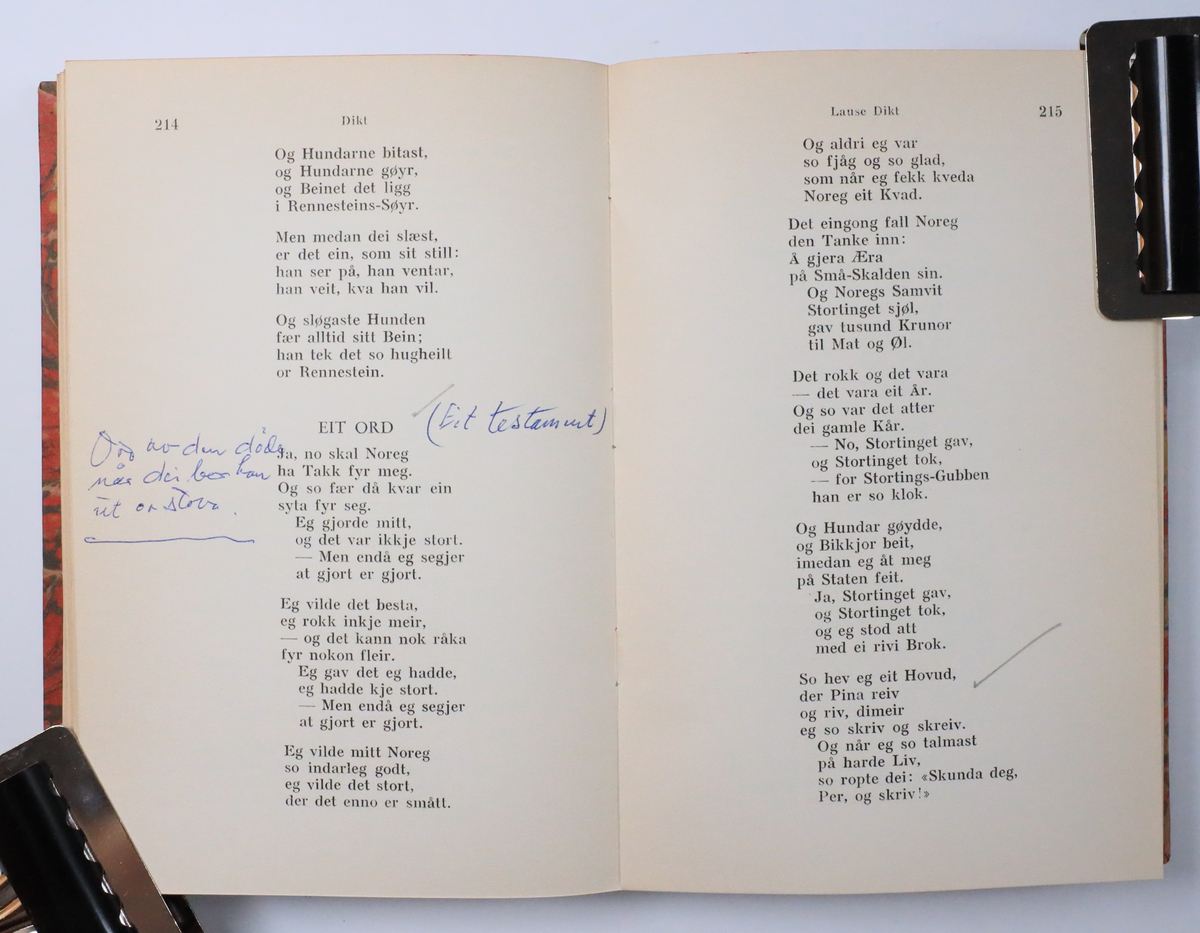 214
Dikt
Og Hundarne bitast,
og Hundarne gøyr,
og Beinet det ligg
i Rennesteins-Søyr.
Men medan dei slæst,
er det ein, som sit still:
han ser på, han ventar,
han veit, kva han vil.
Og sløgaste Hunden
fær alltid sitt Bein;
han tek det so hugheilt
or Rennestein.
EIT ORD
(Eit testament)
Ord av den døde
når dei ber han
ut or stova.
Ja, no skal Noreg
ha Takk fyr meg.
Og so fær då kvar ein
syta fyr seg.
Eg gjorde mitt,
og det var ikkje stort.
— Men endå eg segjer
at gjort er gjort.
Eg vilde det besta,
eg rokk inkje meir,
— og det kann nok råka
fyr nokon fleir.
Eg gav det eg hadde,
eg hadde kje stort.
— Men endå eg segjer
at gjort er gjort.
Eg vilde mitt Noreg
so indarleg godt,
eg vilde det stort,
der det enno er smått.
Lause Dikt
215
Og aldri eg var
so fjåg og so glad,
som når eg fekk kveda
Noreg eit Kvad.
Det eingong fall Noreg
den Tanke inn:
Å gjera Æra
på Små-Skalden sin.
Og Noregs Samvit
Stortinget sjøl,
gav tusund Krunor
til Mat og Øl.
Det rokk og det vara
— det vara eit År.
Og so var det atter
dei gamle Kår.
— No, Stortinget gav,
og Stortinget tok,
— for Stortings-Gubben
han er so klok.
Og Hundar gøydde,
og Bikkjor beit,
imedan eg åt meg
på Staten feit.
Ja, Stortinget gav,
og Stortinget tok,
og eg stod att
med ei rivi Brok.
So hev eg eit Hovud,
der Pina reiv
og riv, dimeir
eg so skriv og skreiv.
Og når eg so talmast
på harde Liv,
so ropte dei: «Skunda deg,
Per, og skriv!»